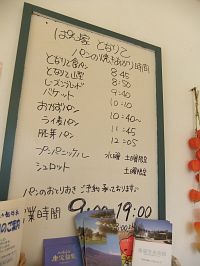 ぱん家 となりこ
パンの焼きあがり時間
となりこ食パン 8:45
となりこ山型 8:50
レーズンブレッド 9:40
バケット 10:10
おかずパン 10:40〜
ライ麦パン 11:45
胚芽パン 12:05
プンパニッケル 水曜 土曜限定
シュロット 土曜限定
パンのおとりおき ご予約 承っております♪
業時間 9:00-19:00